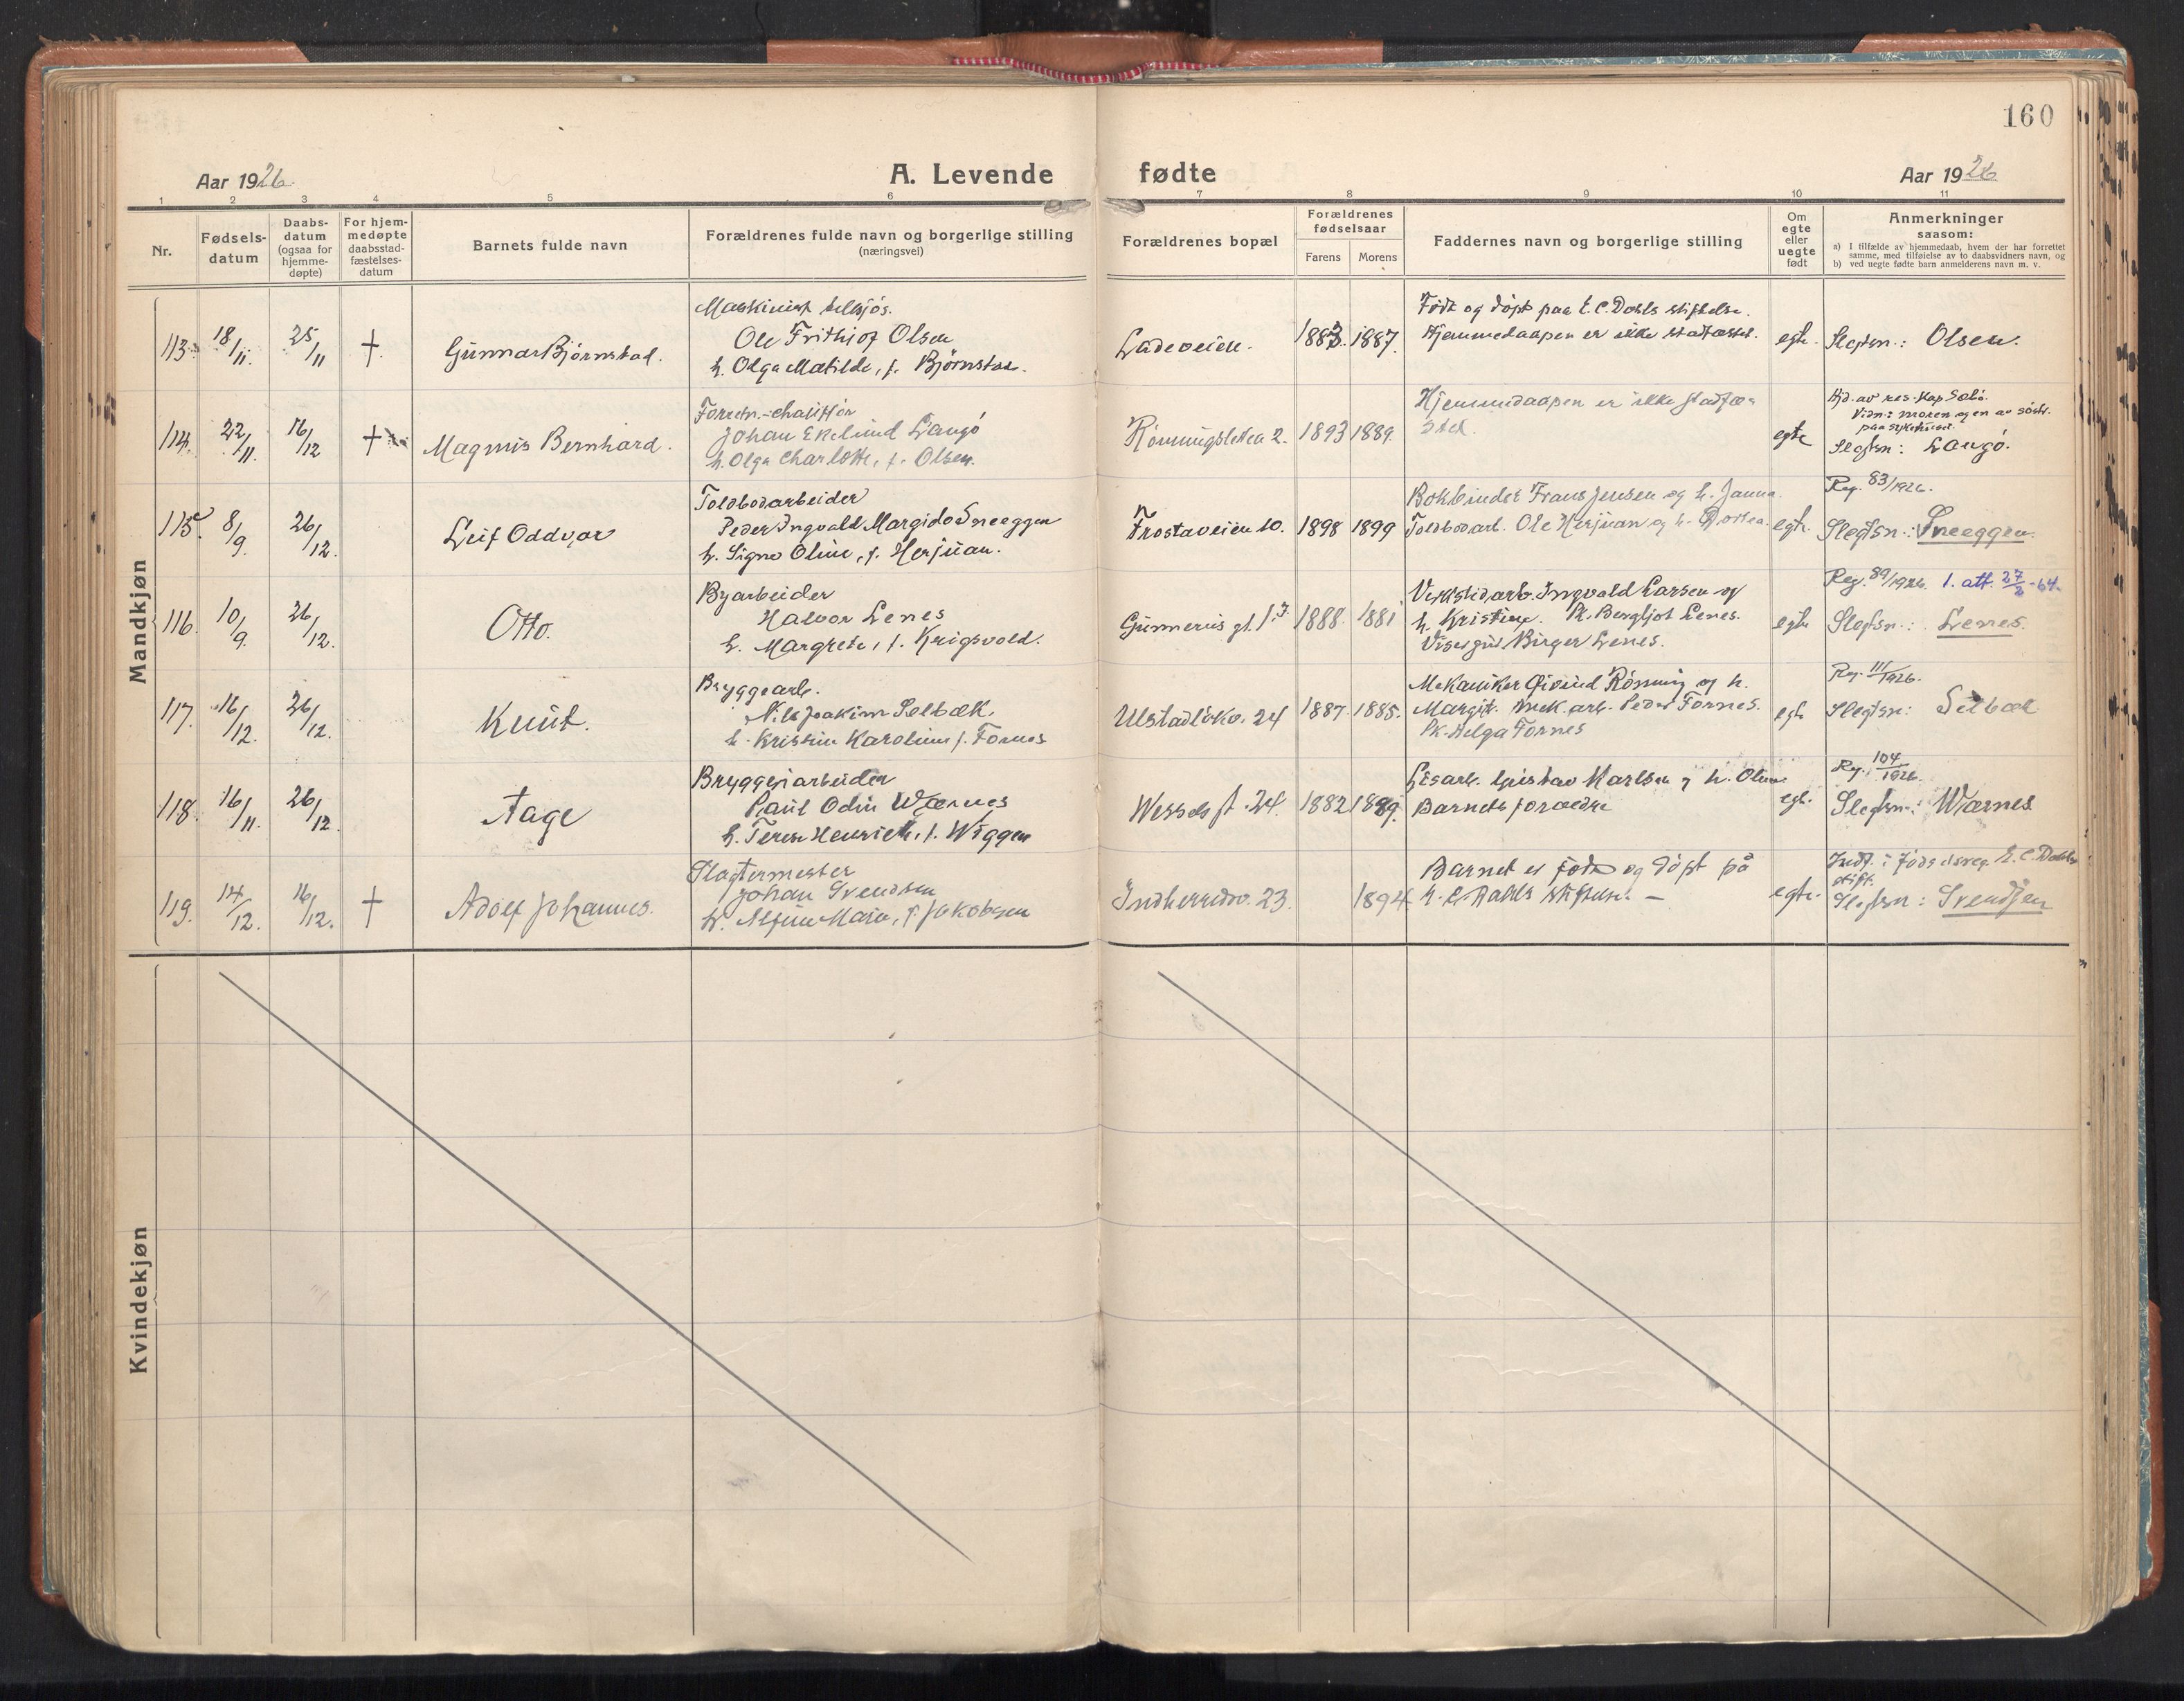 160
Aar 1926
A. Levende
fødte
Aar 1926
1 2 3 4 5 6 7 8 9 10 11
Nr.
Fødsels-
datum
Daabs-
datum
(ogsaa for
hjemme-
døpte)
For hjem-
medøpte
daabsstad-
fæstelses-
datum
Barnets fulde navn
Forældrenes fulde navn og borgerlige stilling
(næringsvei)
Forældrenes bopæl
Forældrenes
fødselsaar
Farens Morens
Faddernes navn og borgerlige stilling
Om
egte
eller
uegte
født
Anmerkninger
saasom:
a) I tilfælde av hjemmedaab, hvem der har forrettet
samme, med tilføielse av to daabsvidners navn, og
b) ved uegte fødte barn anmelderens navn m. v.
Mandkjøn
113. 18/11. 25/11 † Gunnar Bjørnstad.
Maskinist tilsjøs.
Ole Frithjof Olsen
h. Olga Matilde, f. Bjørnstad.
Ladeveien. 1883. 1887.
Født og døpt paa E. C. Dahls stiftelse.
Hjemmedaapen er ikke stadfæstet.
egte. Slegtsn.: Olsen.
114. 22/11. 16/12 † Magnus Bernhard.
Forretn.-chauffør
Johan Ekelund Langø
h. Olga Charlotte, f. Olsen.
Rønningsletta 2. 1893 1889.
Hjemmedaapen er ikke stadfæ-
stet.
egte
Hjd. av res. kap. Sælø.
Vidn.: moren og en av søstr.
paa sykehuset.
Slegtsn: Langø.
115. 8/9. 26/12. Leif Oddvar
Toldbodarbeider
Peder Ingvald Margido Sneeggen
h. Signe Oline, f. Herjuan.
Frostaveien 10. 1898 1899
Bokbinder Frans Jensen og h. Janna.
Toldbodarb. Ole Herjuan og h. Dortea.
egte.
Reg. 83/1926.
Slegtsn.: Sneeggen.
116. 10/9. 26/12. Otto.
Byarbeider
Halvor Lenes
h. Margrete, f. Krigsvold.
Gunnerus gt. 1 1888. 1881
Verkstedarb. Ingvald Larsen og
h. Kristine. Pk. Bergljot Lenes.
Visergut Birger Lenes.
egte
Reg. 89/1926. 1. att. 27/2-64.
Slegtsn.: Lenes.
117. 16/12. 26/12. Knut.
Bryggearb.
Nils Joakim Selbæk,
h. Kristine Karoline f. Fornes
Ulstadløkv. 24 1887. 1885.
Mekaniker Øivind Rønning og h.
Margit. Mek. arb. Peder Fornes.
Pk. Helga Fornes
egte
Reg. 111/1926.
Slegtsn: Selbæk
118. 16/11. 26/12. Aage
Bryggeriarbeider
Paul Odin Wærnes
h. Terese Henriette, f. Wiggen
Wessels gt. 24. 1882 1889.
Gustav Karlsen og h. Oline
Barnets foreldre
egte.
Reg. 104/1926.
Slegtsn.: Wærnes
119. 14/12. 16/12. † Adolf Johannes.
Slagtermester
Johan Svendsen
h. Alfine Marie, f. Jakobsen
Indherredsv. 23. 1894.
Barnet er født og døpt på
E. C. Dahls stiftelse. —
egte.
Indf. i fødselsreg. E. C. Dahls
stift.
Slegtsn: Svendsen
Kvindekjøn